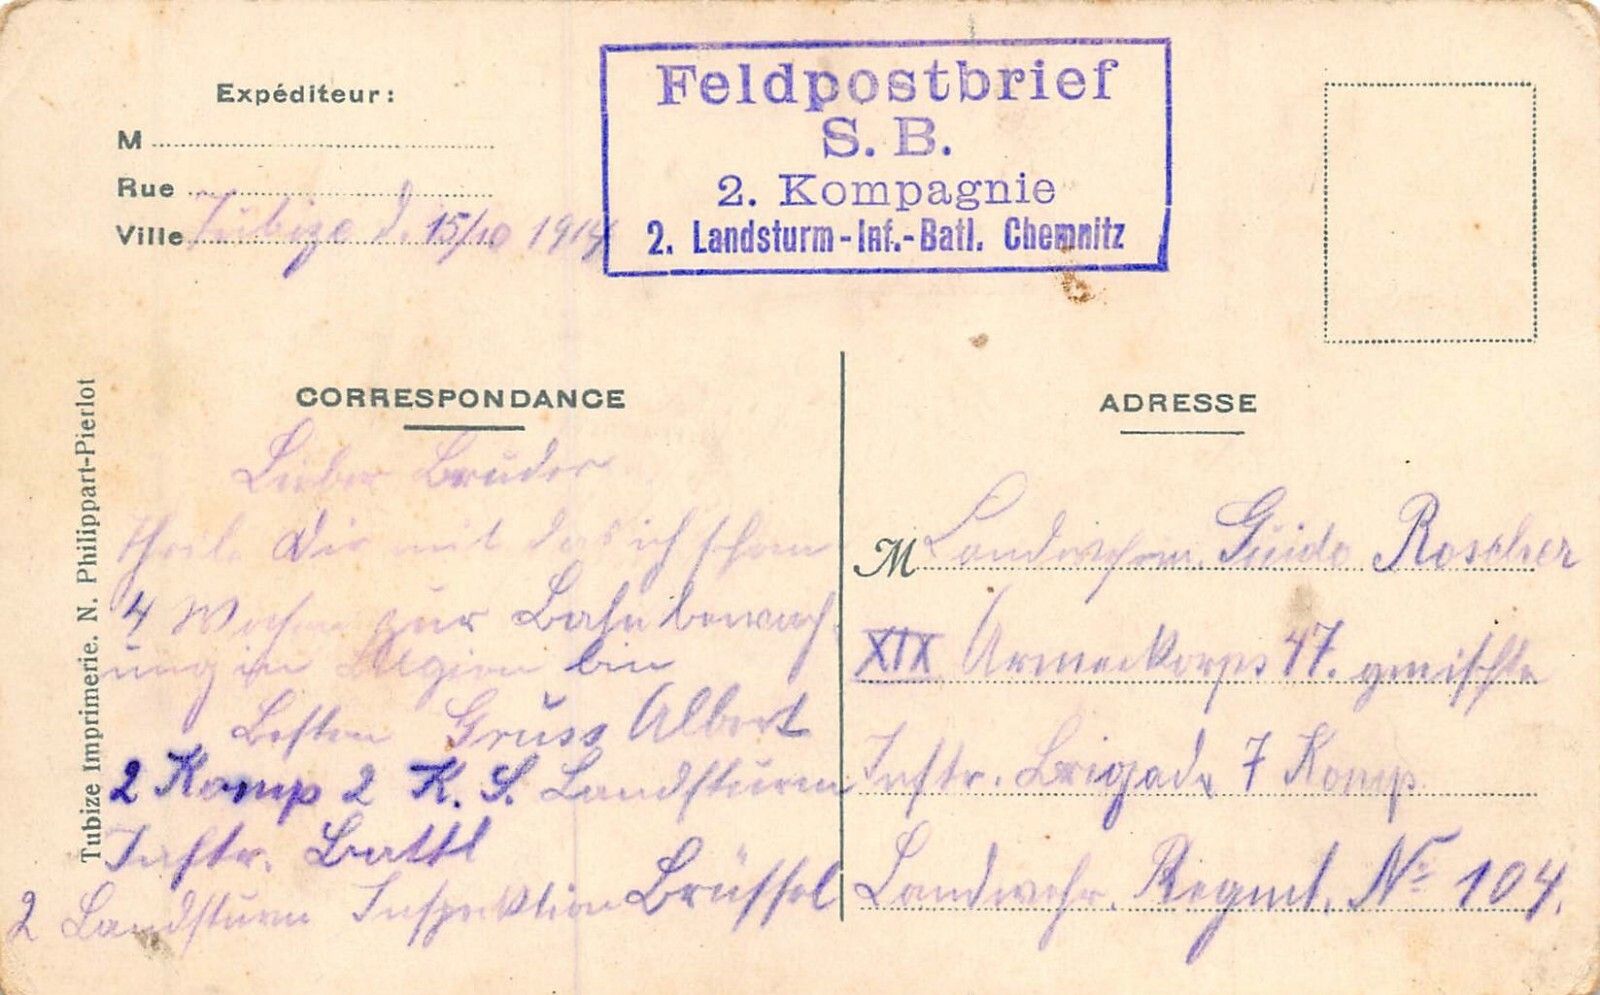 Expéditeur:
M
Rue
Ville Tubize d. 15/10 1914
Feldpostbrief
S. B.
2. Kompagnie
2. Landsturm-Inf.-Batl. Chemnitz
Tubize Imprimerie. N. Philippart-Pierlot
CORRESPONDANCE
Lieber Bruder
theile Dir mit das ich schon
4 Wochen zur Bahnbewach-
ung in Belgien bin
Besten Gruss Albert
2 Komp 2 K. S. Landsturm
Inftr. Battl
2 Landsturm Inspektion Brüssel
ADRESSE
M Landwehrm. Guido Roscher
XIX Armeekorps 47. gemischte
Inftr. Brigade 7 Komp.
Landwehr. Regmt. No 104.